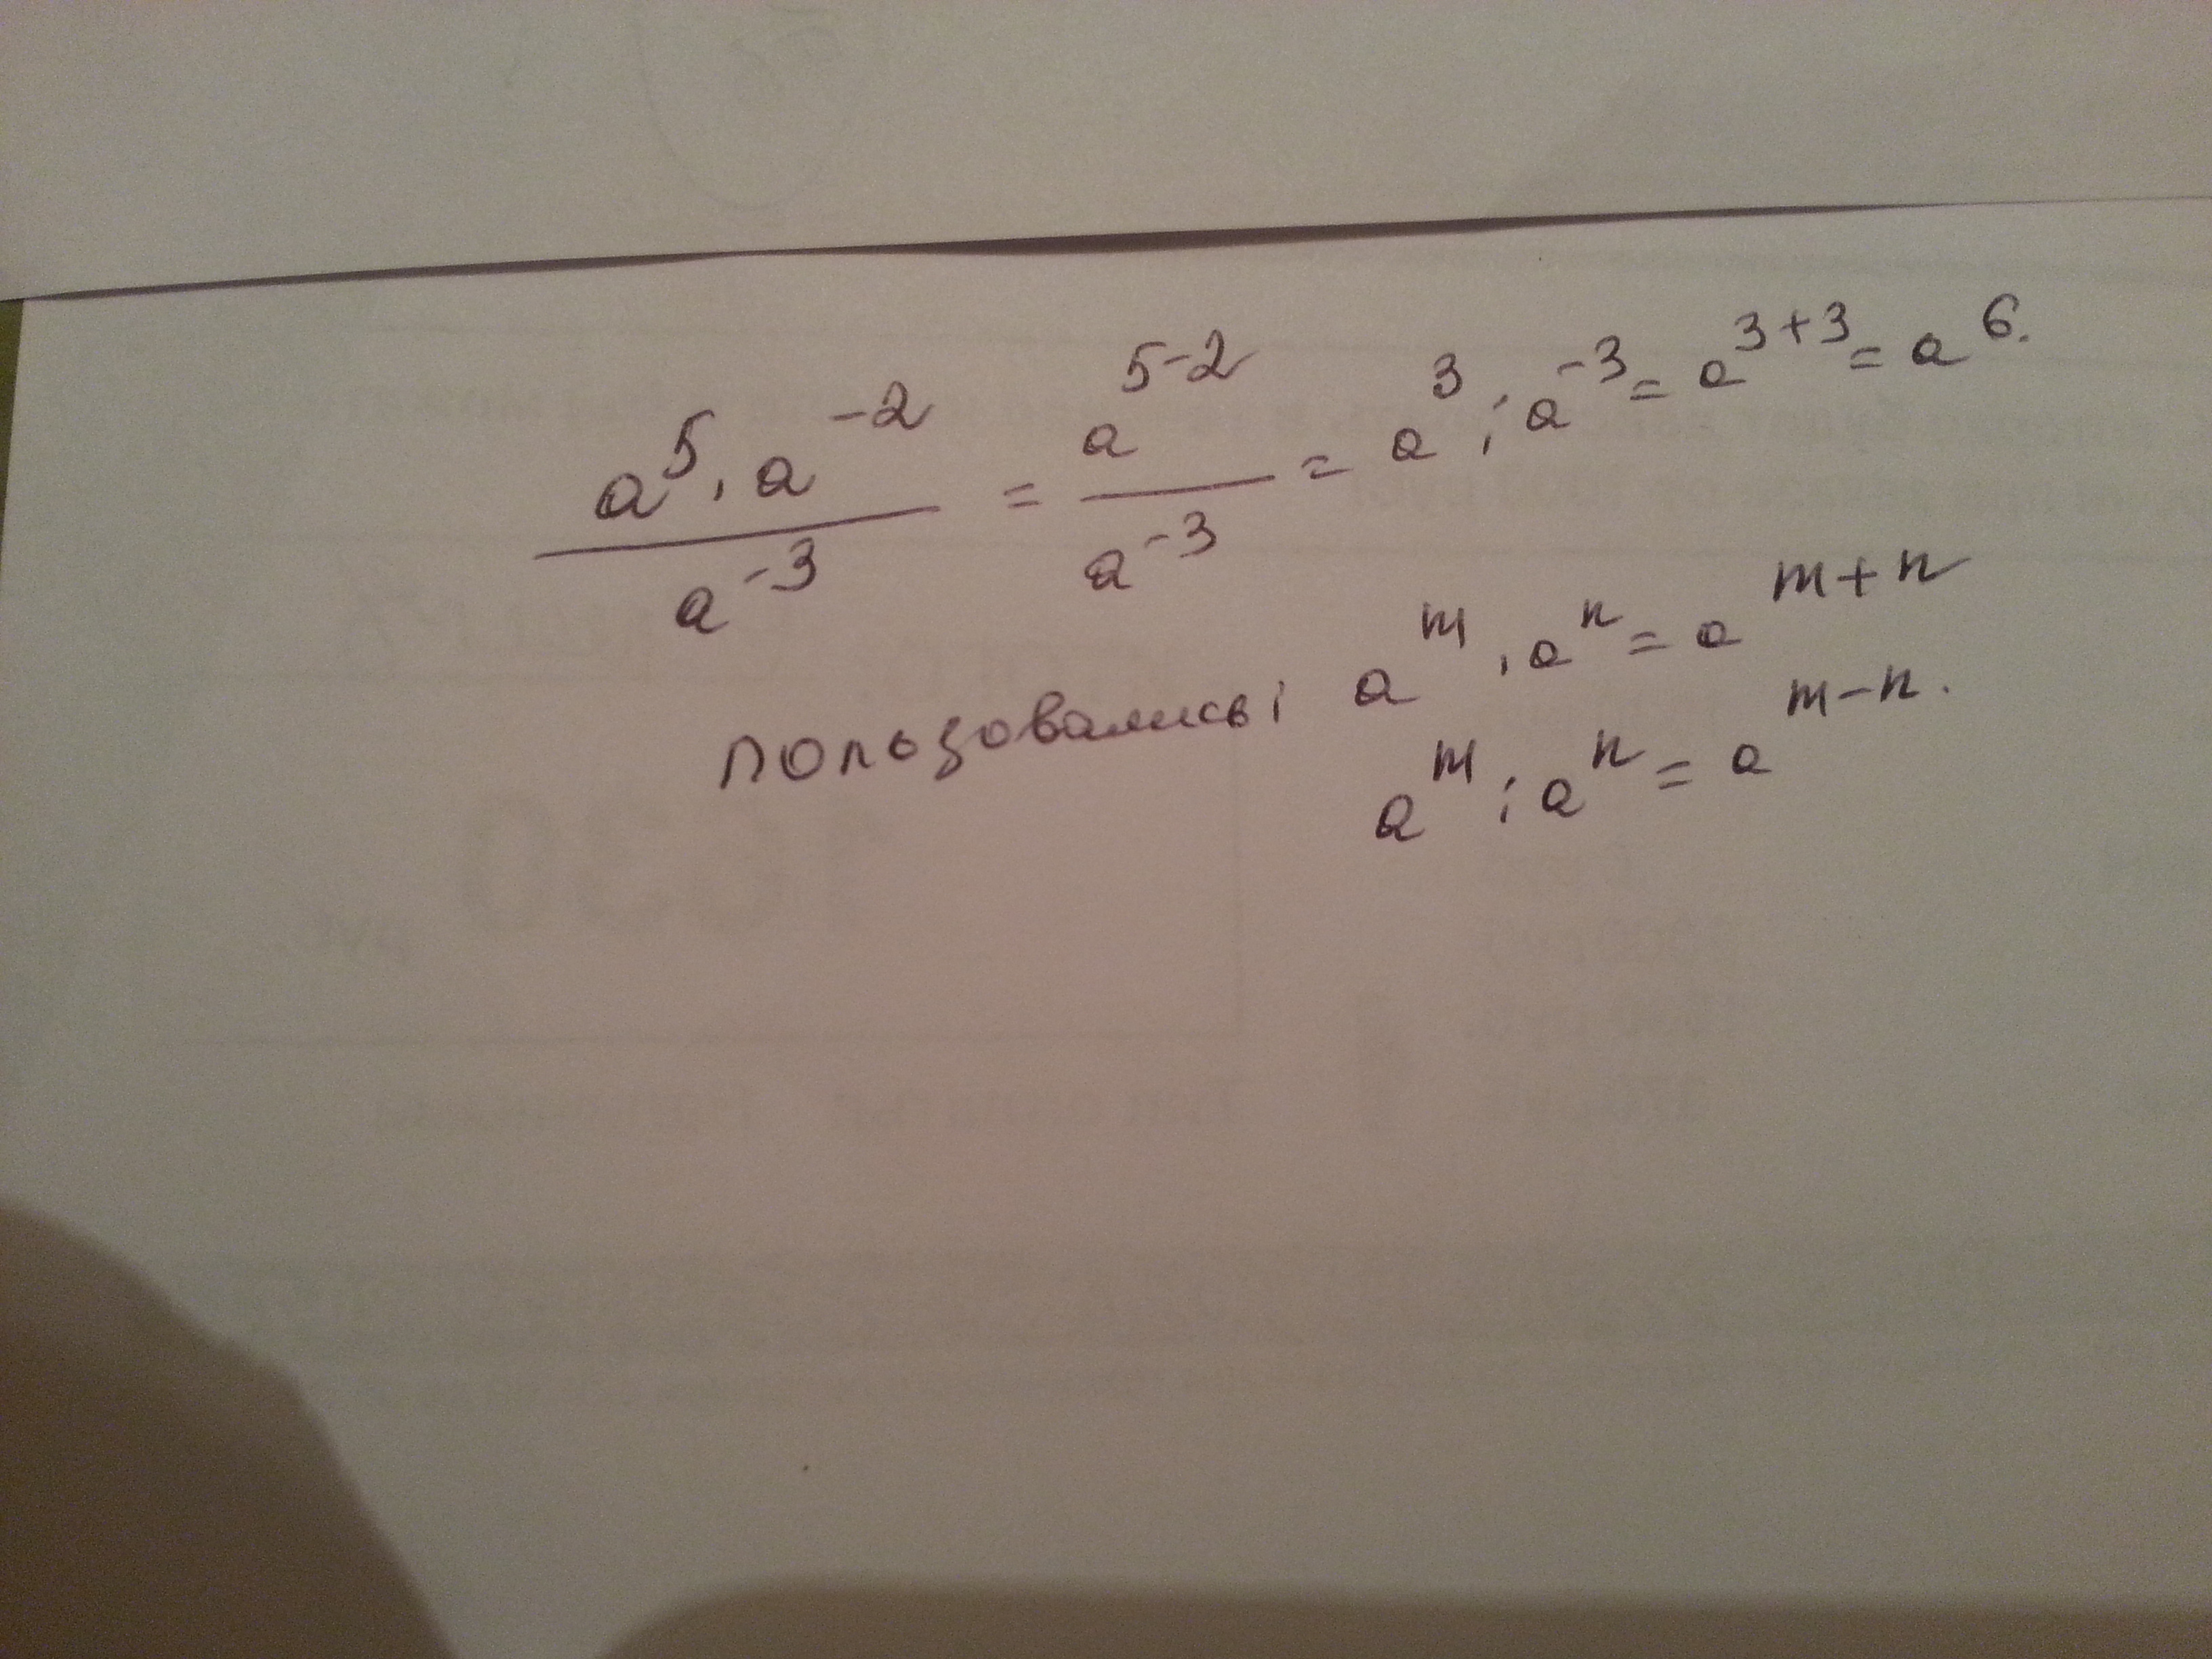 a⁵ · a⁻² / a⁻³ = a⁵⁻² / a⁻³ = a³ : a⁻³ = a³⁺³ = a⁶.
пользовались: aᵐ · aⁿ = aᵐ⁺ⁿ
aᵐ : aⁿ = aᵐ⁻ⁿ.